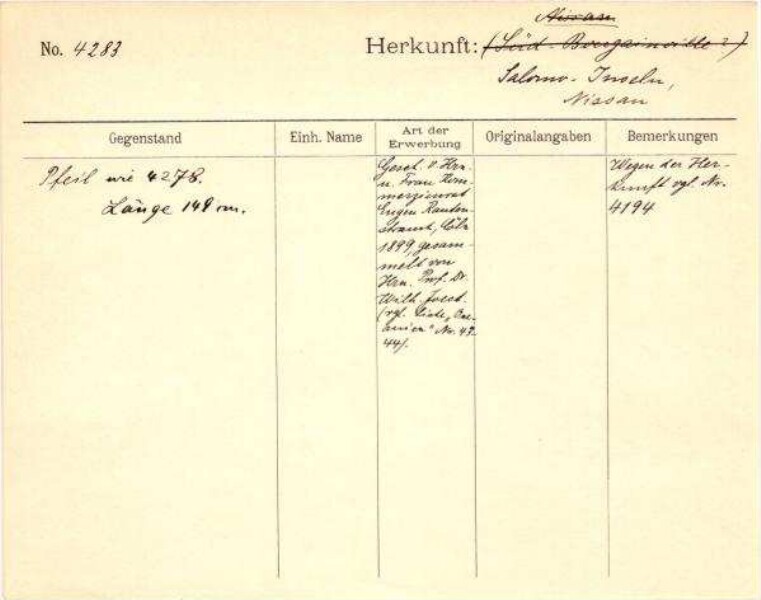 Nissan
No. 4283 Herkunft: (Süd-Bougainville?)
Salomo-Inseln,
Nissan
Gegenstand
Einh. Name
Art der
Erwerbung
Originalangaben
Bemerkungen
Pfeil wie 4278.
Länge 149 cm.
Gesch. v. Hrn.
u. Frau Kom-
merzienrat
Eugen Rauten-
strauch, Cöln
1899, gesam-
melt von
Hrn. Prof. Dr.
Wilh. Joest.
(vgl. Liste „Oze-
anien" Nr. 42-
44).
Wegen der Her-
kunft vgl. Nr.
4194